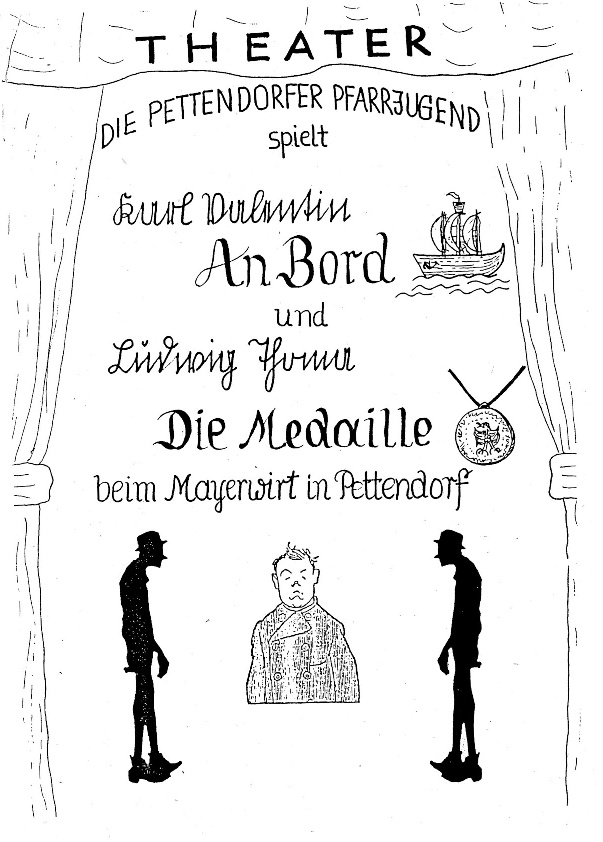 THEATER
DIE PETTENDORFER PFARRJUGEND
spielt
Karl Valentin
An Bord
und
Ludwig Thoma
Die Medaille
beim Mayerwirt in Pettendorf